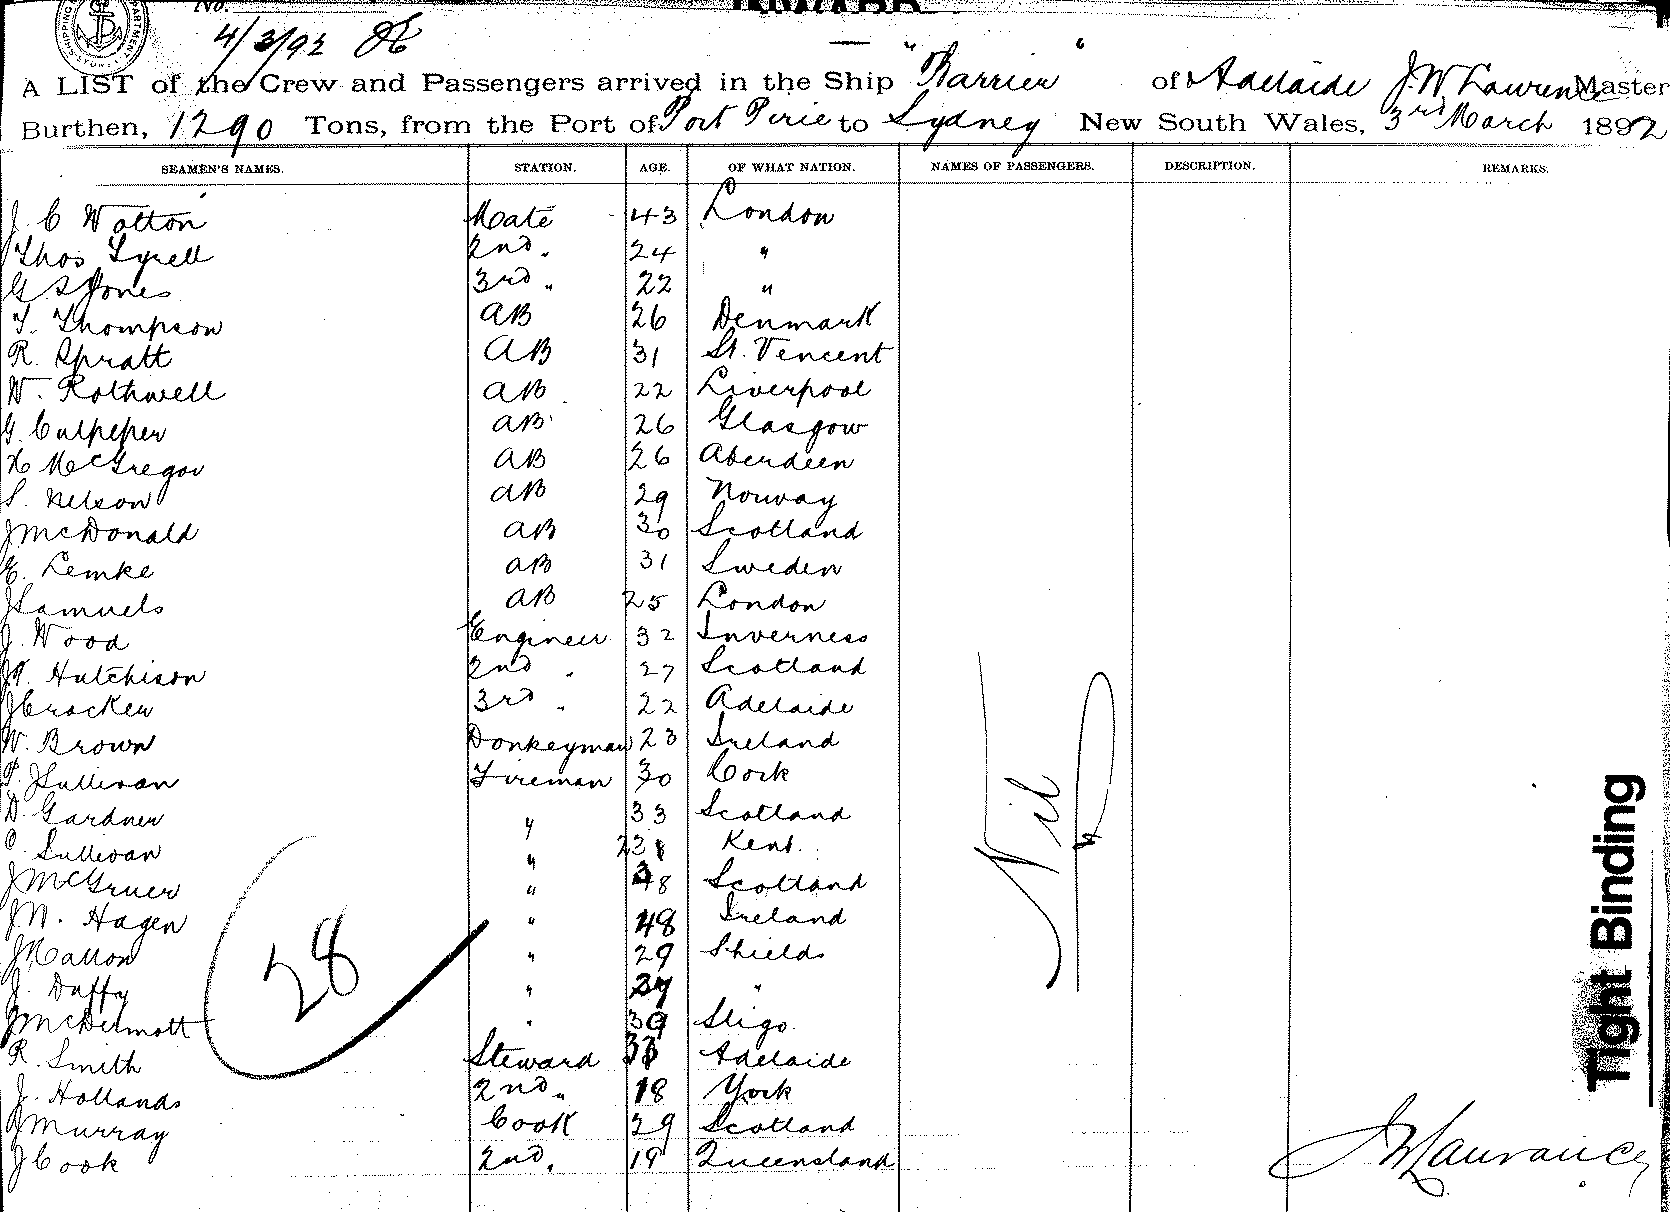 No.
4/3/92
A LIST of the Crew and Passengers arrived in the Ship "Barrier" of Adelaide J. W. Laurence Master
Burthen, 1290 Tons, from the Port of Port Pirie to Sydney New South Wales, 3rd March 1892
SEAMEN'S NAMES. STATION. AGE. OF WHAT NATION. NAMES OF PASSENGERS. DESCRIPTION. REMARKS.
J C Watton Mate 43 London
Thos Tyrell 2nd " 24 "
G S Jones 3rd " 22 "
T. Thompson AB 26 Denmark
R. Spratt AB 31 St. Vencent
W. Rothwell AB 22 Liverpool
G. Culpeper AB 26 Glasgow
H McGregor AB 26 Aberdeen
S. Nelson AB 29 Norway
J McDonald AB 30 Scotland
E. Lemke AB 31 Sweden
J Samuels AB 25 London
J. Wood Engineer 32 Inverness
Hutchison 2nd " 27 Scotland
J Cracker 3rd " 22 Adelaide
W. Brown Donkeyman 23 Ireland
J Sullivan Fireman 30 Cork
D. Gardner " 33 Scotland
Sullivan " Kent.
J McGruer " Scotland
J. W. Hagen " 48 Ireland
" 29 Shields
J. Duffy " "
J McDermott " 39 Sligo
R. Smith Steward 33 Adelaide
J. Hollands 2nd " 18 York
J Murray Cook 29 Scotland
J Cook 2nd " 19 Queensland
28
Nil
Tight Binding
J W Laurance